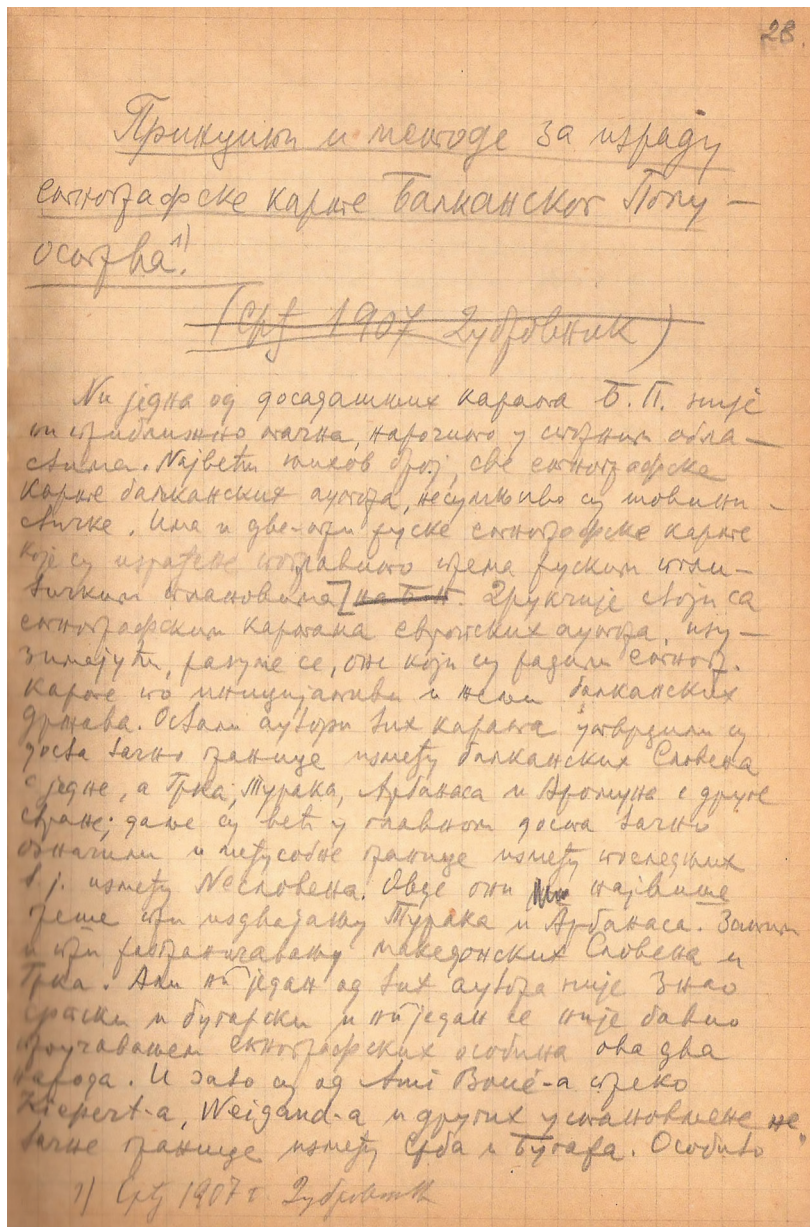 28.
Принципи и методе за израду
етнографске карте Балканског Полу-
острва.¹⁾
(Срђ 1907 Дубровник)
Ни једна од досадашњих карата Б. П. није
ни приближно тачна, нарочито у спорним обла-
стима. Највећи њихов број, све етнографске
карте балканских аутора, несумњиво су шовини-
стичке. Има и две-три руске етнографске карте
које су израђене поглавито према руским поли-
тичким плановима] на Б. П. Друкчије стоји са
етнографским картама европских аутора, изу-
зимајући, разуме се, оне који су радили етногр.
карте по иницијативи и жељи балканских
држава. Остали аутори тих карата утврдили су
доста тачно границе између балканских Словена
с једне, а Грка, Турака, Арбанаса и Аромуна с друге
стране; даље су већ у главном доста тачно
означили и међусобне границе између последњих
т.ј. између Несловена. Овде они највише
греше при издвајању Турака и Арбанаса. Затим
и при разграничавању македонских Словена и
Грка. Али ни један од тих аутора није знао
српски и бугарски и ни један се није бавио
проучавањем етнографских особина ова два
народа. И зато су од Ami Boué-a преко
Kiepert-a, Weigand-a и других установљене не-
тачне границе између Срба и Бугара. Особито
1) Срђ 1907 г. Дубровник